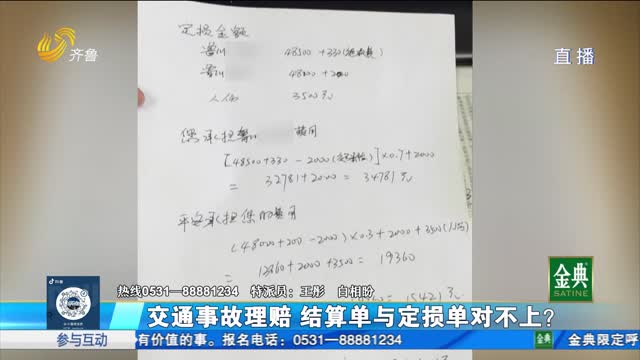 齐鲁
直播
定损金额
48500+330(拖车费)
48000+200
人伤 3500元
[48500+330-2000(交强险)]×0.7+2000
= 32781+2000=34781元
平安承担您的费用
(48000+200-2000)×0.3+2000+3500(人伤)
= 13860+2000+3500=19360
15421元
热线0531—88881234 特派员：王彤 白相盼
交通事故理赔 结算单与定损单对不上?
金典
SATINE
参与互动
有价值的事。报名电话：0531—88881234
金典限定呼